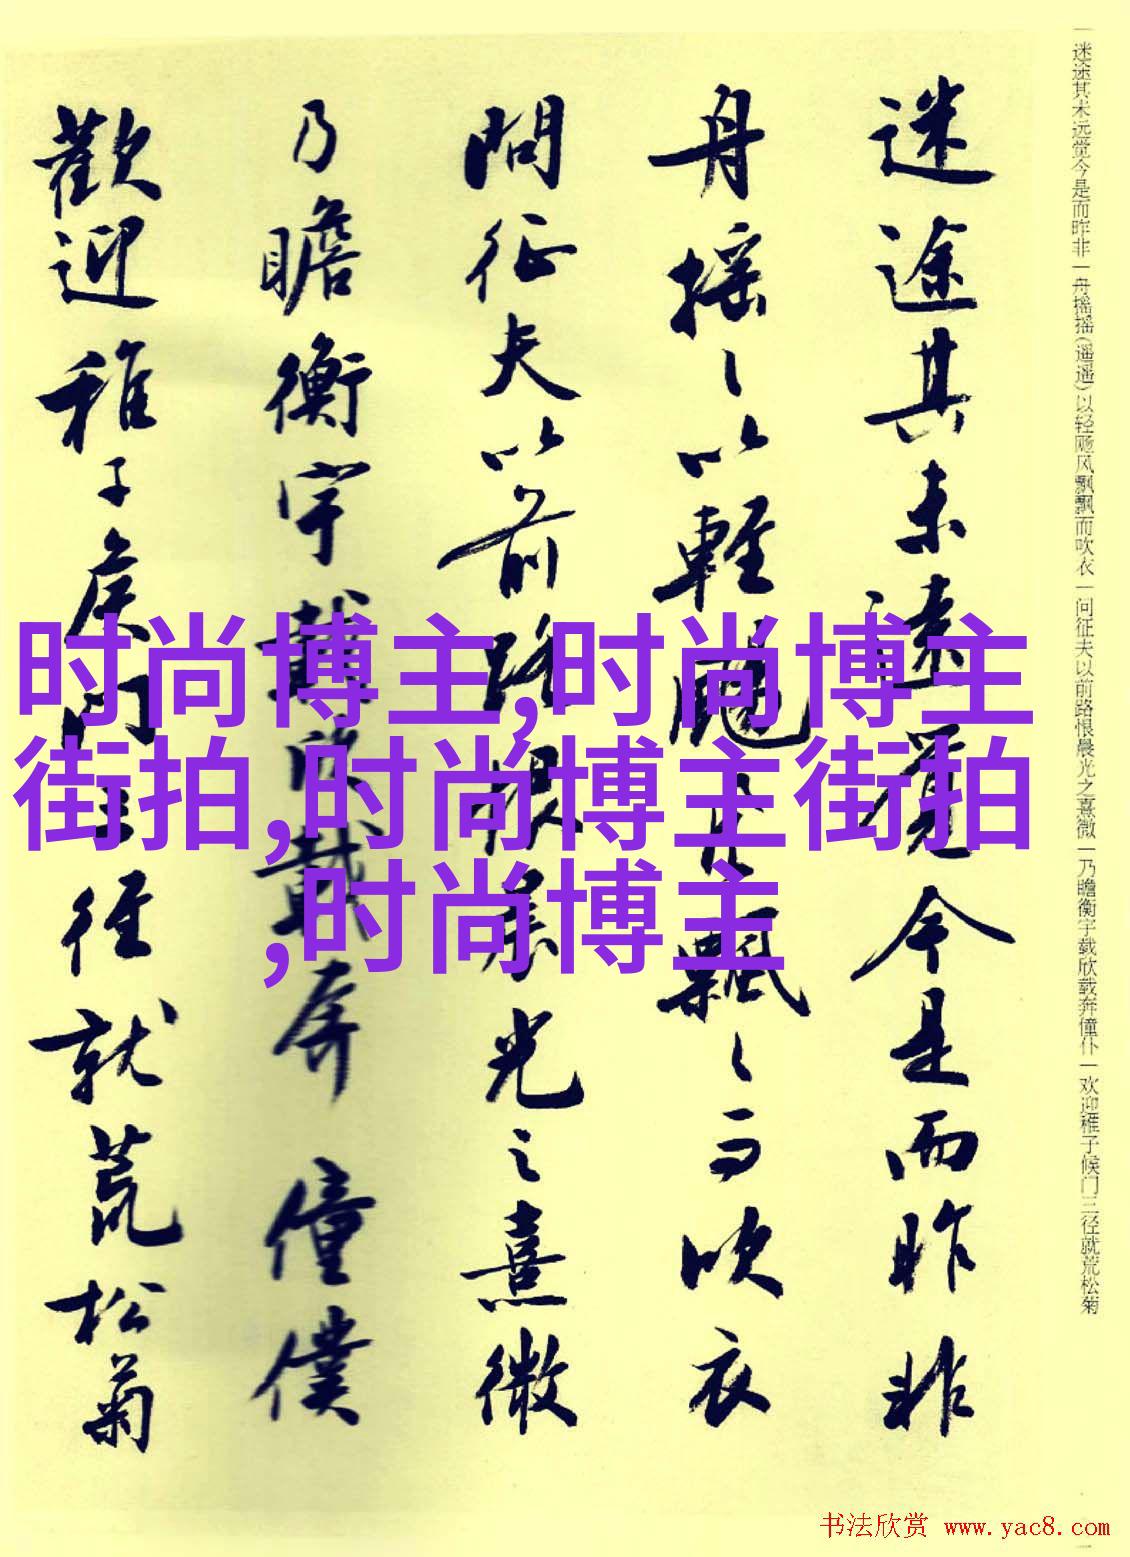 迷途其未远觉今是而昨非一舟摇摇(遥遥)以轻飏风飘飘而吹衣一问征夫以前路恨晨光之熹微一乃瞻衡宇载欣载奔僮仆一欢迎稚子候门三径就荒松菊
迷途其未遠覺今是而昨非
舟摇〻以輕颺風飄〻而吹衣
問征夫以前路恨晨光之熹微
乃瞻衡宇載欣載奔僮僕
歡迎稚子候門三徑就荒松菊
时尚博主,时尚博主
街拍,时尚博主街拍
,时尚博主
书法欣赏 www.yac8.com